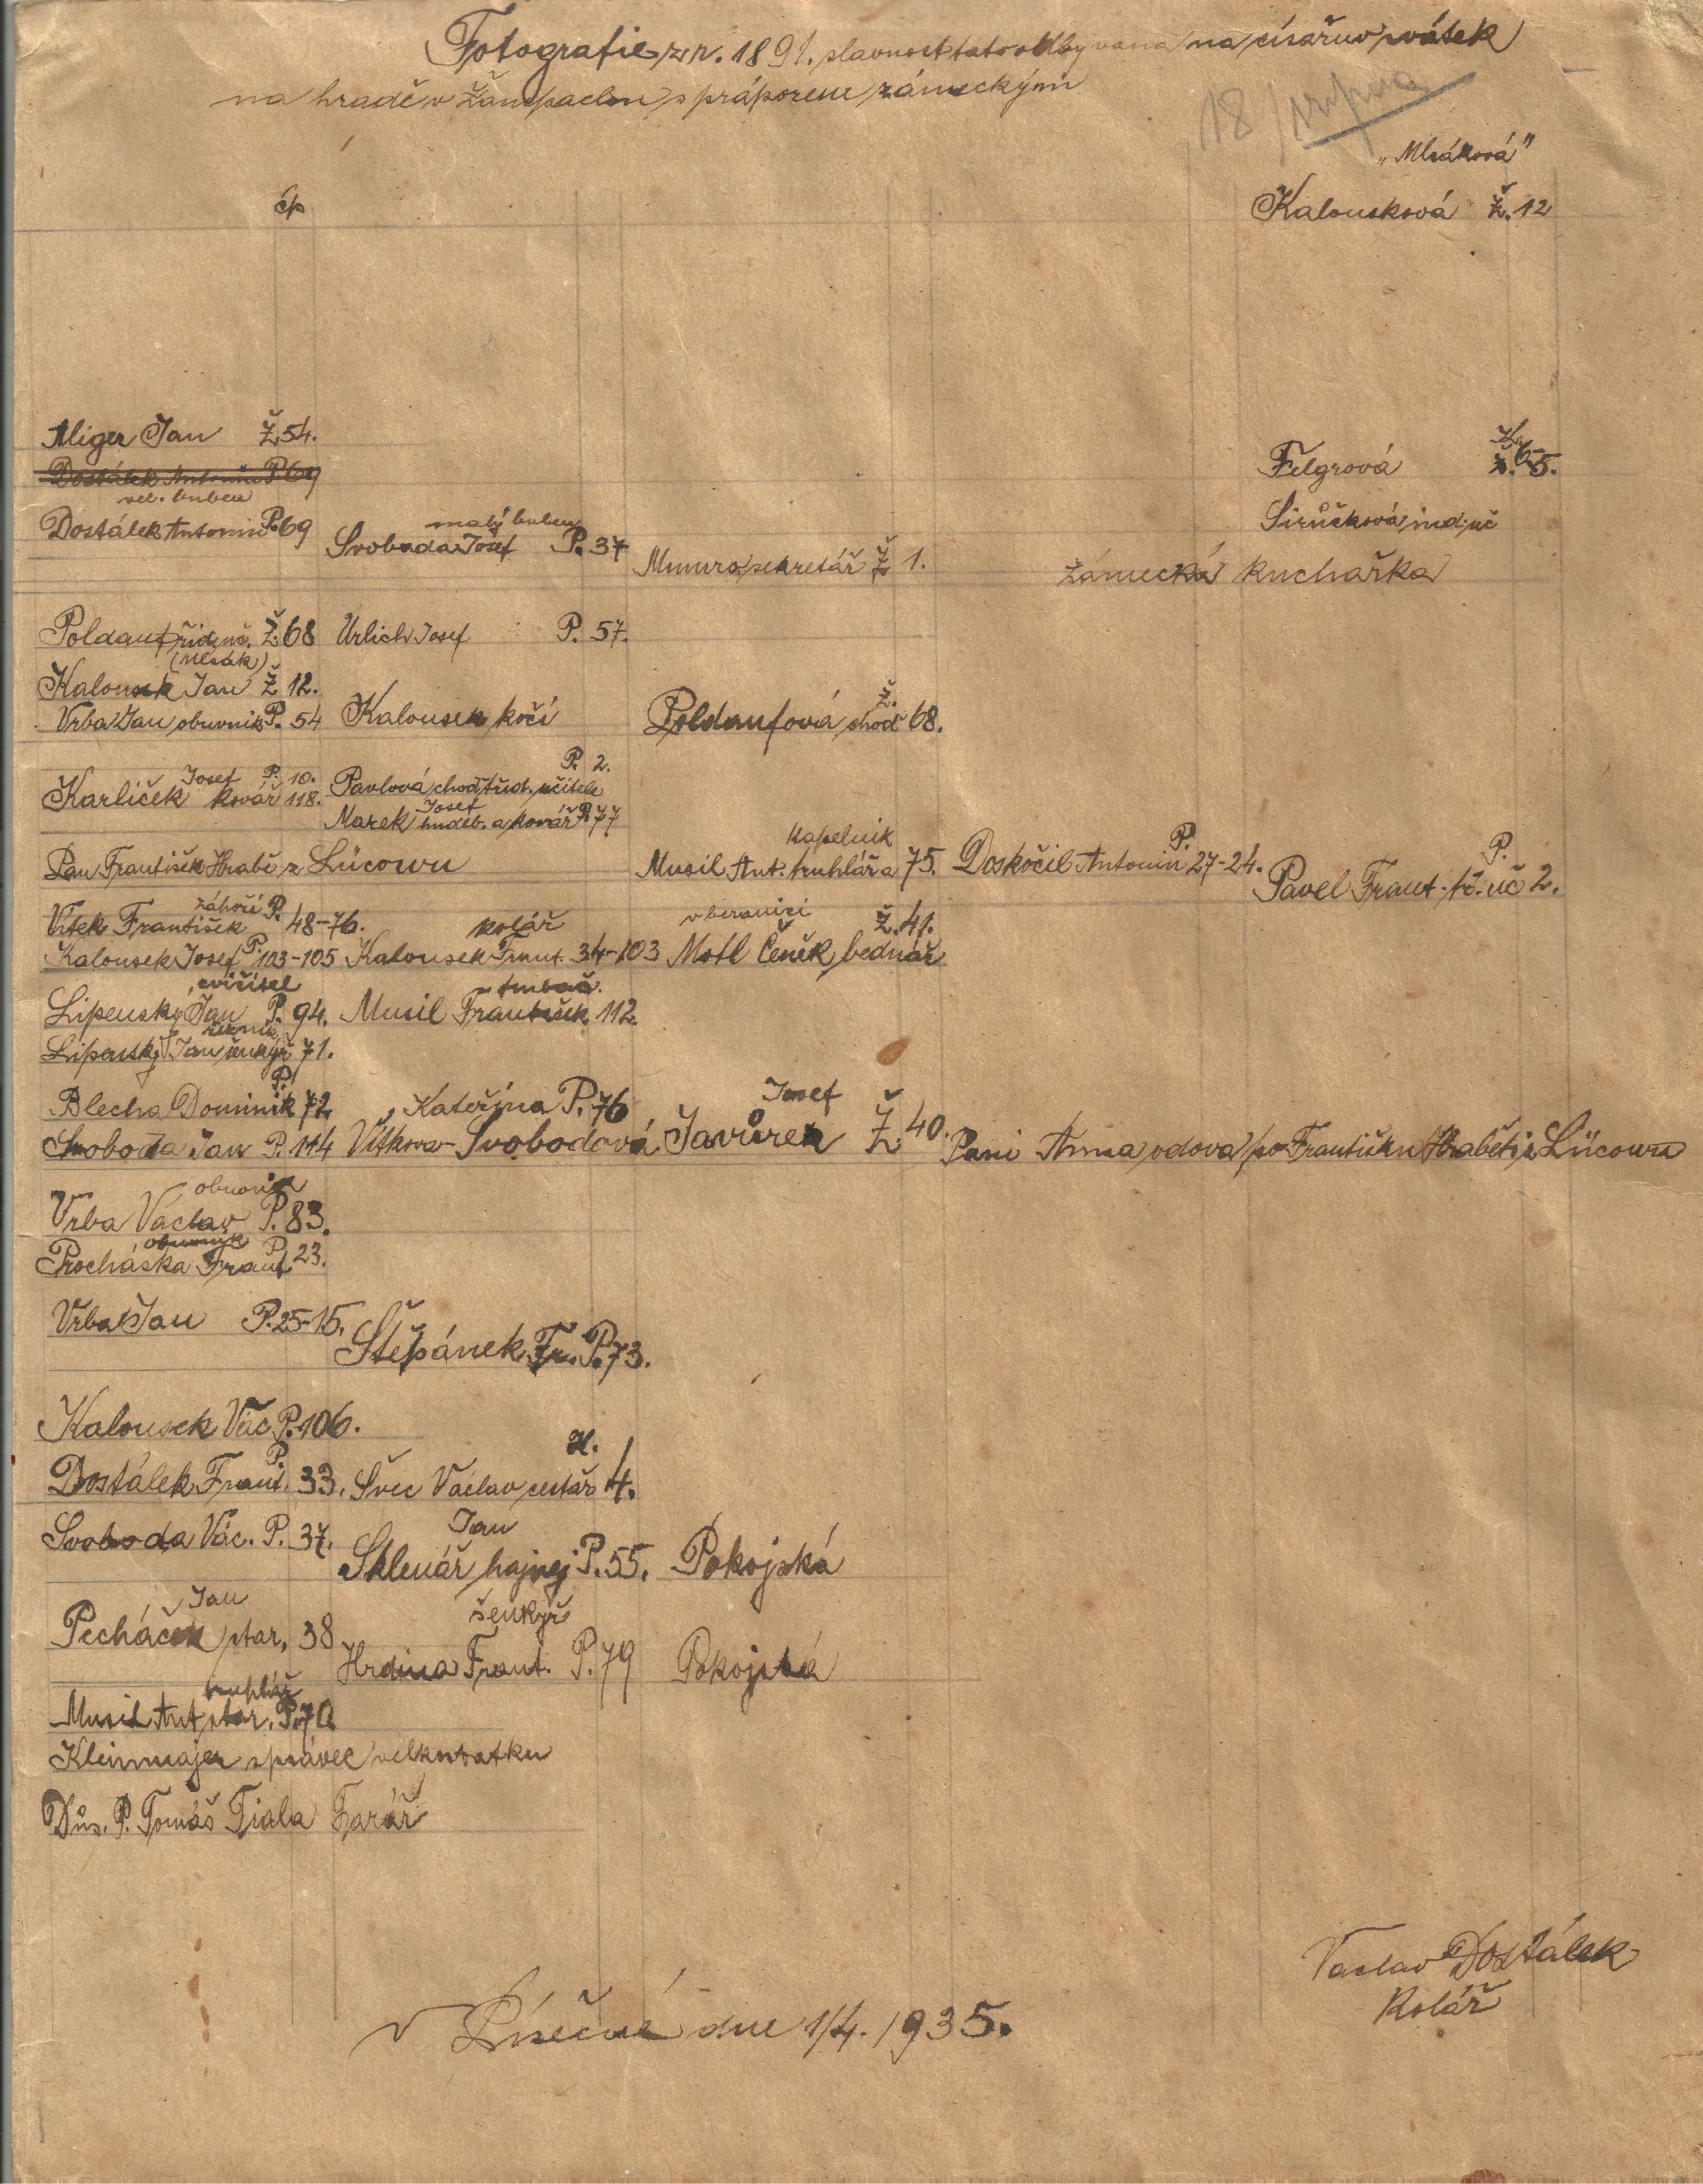 Fotografie z r. 1891. slavnost tato odbyvana na císařuv svátek
na hradě v Žampachu s práporem zámeckým
18/
"Mlsáková"
čp
Kalousková Ž. 12
Aliger Jan Ž 54.
Felgrová K. 65.
Dostálek Antonín P. 69
vel. buben
Sirůčková ind. uč
Dostálek Antonin P. 69
malý buben
Svoboda Josef P. 37
Mumra sekretář Ž 1.
Zámecká kuchařka
Poldauf říd. uč. Ž. 68 Urlich Josef P. 57.
(Mlsák)
Kalousek Jan Ž 12.
Vrba Jan obuvnik P. 54 Kalousek kočí Poldaufová choď Ž. 68.
Josef P. 10.
Karlíček kovář 118.
P. 2.
Pavlová choď říd. učitele
Josef
Marek hudeb. a kovář P. 77
kapelnik
Pan František Hrabě z Lücowu Musil Ant. truhlář a 75. Doskočil Antonin P. 27-24. Pavel Frant. ř. uč P. 2.
záhoří P.
Vítek František 48-76.
kolář
v beranici Ž. 41.
Kalousek Josef P. 103-105 Kalousek Frant. 34-103 Motl Čeněk bednář
cvičitel
Lipenský Jan P. 94. Musil František 112.
řezník
Lipenský Jan šenkýř 71.
Blecha Dominik P. 72 Kateřina P. 76 Josef
Svoboda Jan P. 114 Vítkova-Svobodová Javůrek Ž 40. Pani Anna vdova po Františku Hraběti z Lücowu
obuvník
Vrba Vaclav P. 83.
obuvník
Procháska Frant P. 23.
Vrba Jan P. 25-15.
Štěpánek Fr. P. 73.
Kalousek Vác P. 106.
Dostálek Frant. P. 33. Švec Vaclav cestář H. 4.
Svoboda Vác. P. 37.
Jan
Sklenář hajnej P. 55. Pokojská
Jan
Pecháček star. 38
šenkýř
Hrdina Frant. P. 79 Pokojská
truhlář
Musil Ant star. P. 70.
Kleinmajer správec velkostatku
Důs. P. Tomáš Fiala Farář
Vaclav Dostálek
Kolář
v Písečné dne 1/4. 1935.